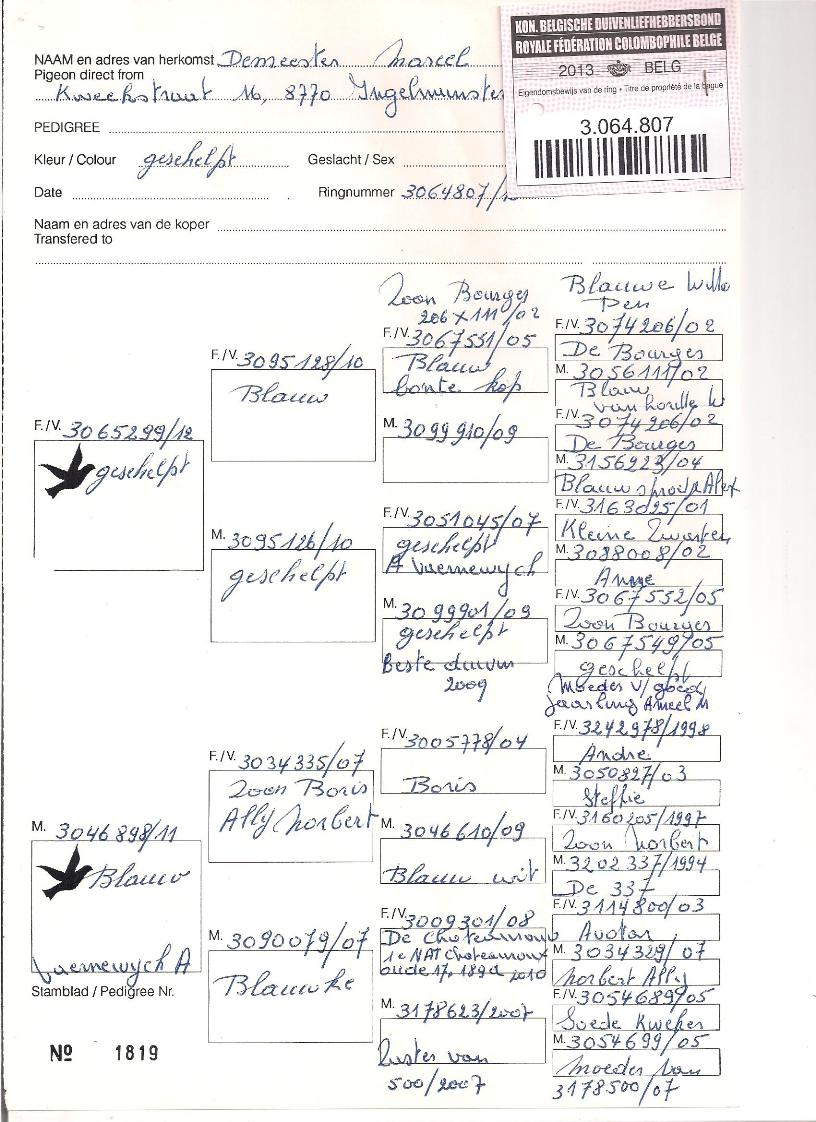 KON. BELGISCHE DUIVENLIEFHEBBERSBOND
ROYALE FÉDÉRATION COLOMBOPHILE BELGE
2013 BELG
Eigendomsbewijs van de ring • Titre de propriété de la bague
3.064.807
NAAM en adres van herkomst Demeester Marcel
Pigeon direct from
Kweekstraat 16, 8770 Ingelmunster
PEDIGREE
Kleur / Colour geschelpt Geslacht / Sex
Date Ringnummer 3064807/
Naam en adres van de koper
Transfered to
F./V. 3065299/12
geschelpt
M. 3046898/11
Blauw
Vaernewyck A
F./V. 3095128/10
Blauw
M. 3095126/10
geschelpt
F./V. 3034335/07
Zoon Boris
Ally Norbert
M. 3090079/07
Blauwke
Zoon Bourges
206 x 111/02
F./V. 3067551/05
Blauw
bonte kop
M. 3099910/09
F./V. 3051045/07
geschelpt
A Vaernewyck
M. 3099901/09
geschelpt
Beste duivin
2009
F./V. 3005778/04
Boris
M. 3046610/09
Blauw wit
F./V. 3009301/08
De Chateauroux
1e NAT Chateauroux
oude 17,189d 2010
M. 3178623/2007
Zuster van
500/2007
Blauwe Witte
Pen
F./V. 3074206/02
De Bourges
M. 3056111/02
Blauw
van W
F./V. 3074206/02
De Bourges
M. 3156923/04
Blauw Alex
F./V. 3163025/01
Kleine Zwarten
M. 3088008/02
Anne
F./V. 3067552/05
Zoon Bourges
M. 3067549/05
geschelpt
Moeder v/ goed
jaarling Ameel M
F./V. 3242978/1998
Andre
M. 3050827/03
Steffie
F./V. 3160205/1997
Zoon Norbert
M. 3202337/1994
De 337
F./V. 3114800/03
Avatar
M. 3034329/07
Norbert Ally
F./V. 3054689/05
Goede Kweker
M. 3054699/05
Moeder van
3178500/07
Stamblad / Pedigree Nr.
Nº 1819